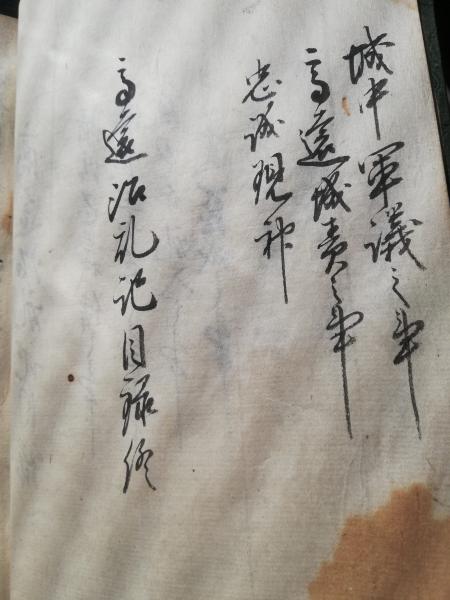 城中軍議之事
高遠城責之事
忠誠現神
高遠治乱記目録終